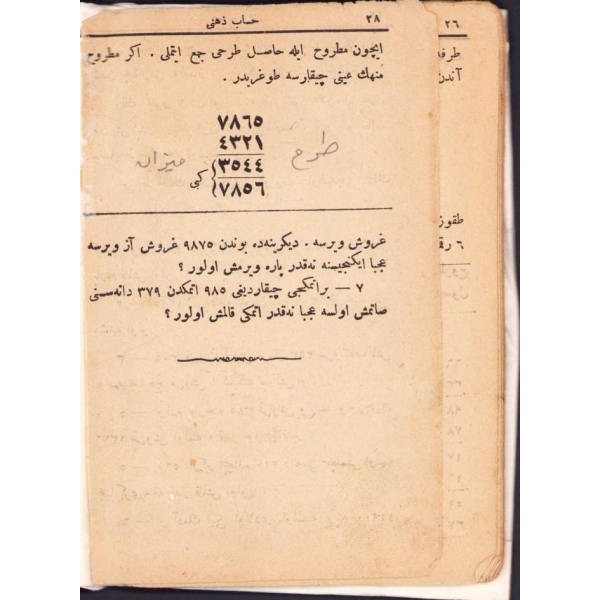 ٢٨ حساب ذهنی
ایچون مطروح ایله حاصل طرحی جمع ایتملی . اکر مطروح
منهك عینی چیقارسه طوغریدر .
٧٨٦٥
٤٣٢١
٣٥٤٤
٧٨٥٦
کبی
طرح
میزان
غروش ویرسه . دیکرینه‌ده بوندن ٩٨٧٥ غروش آز ویرسه
عجبا ایکنجیسنه نه‌قدر پاره ویرمش اولور ؟
٧ — براتمکجی چیقاردیغی ٩٨٥ اتمکدن ٣٧٩ دانه‌سنی
صاتمش اولسه عجبا نه‌قدر اتمکی قالمش اولور ؟
٢٦
طرفه
آندن
طقوز
٦ رق